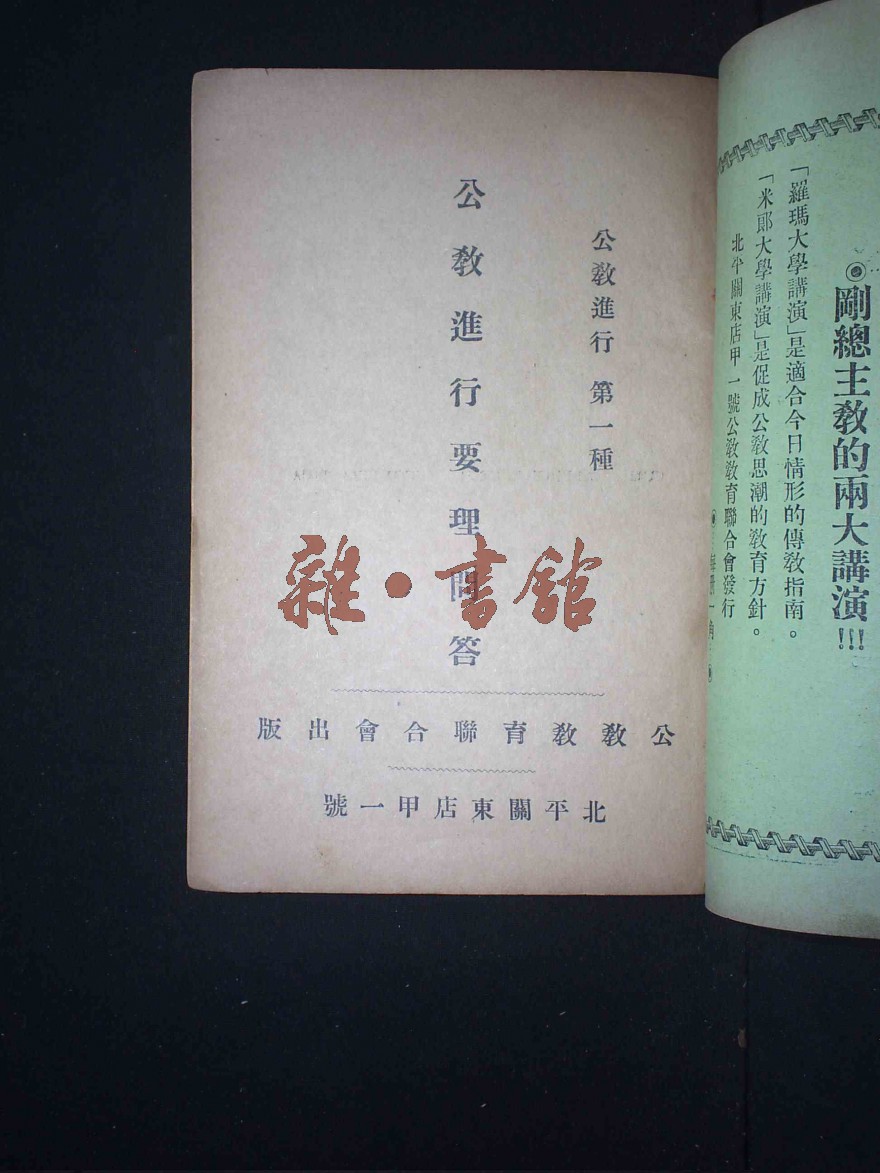 ◉剛總主教的兩大講演!!!
「羅瑪大學講演」是適合今日情形的傳教指南。
「米郎大學講演」是促成公教思潮的教育方針。
北平關東店甲一號公教教育聯合會發行
公教進行 第一種
公教進行要理問答
公教教育聯合會出版
北平關東店甲一號
雜·書館